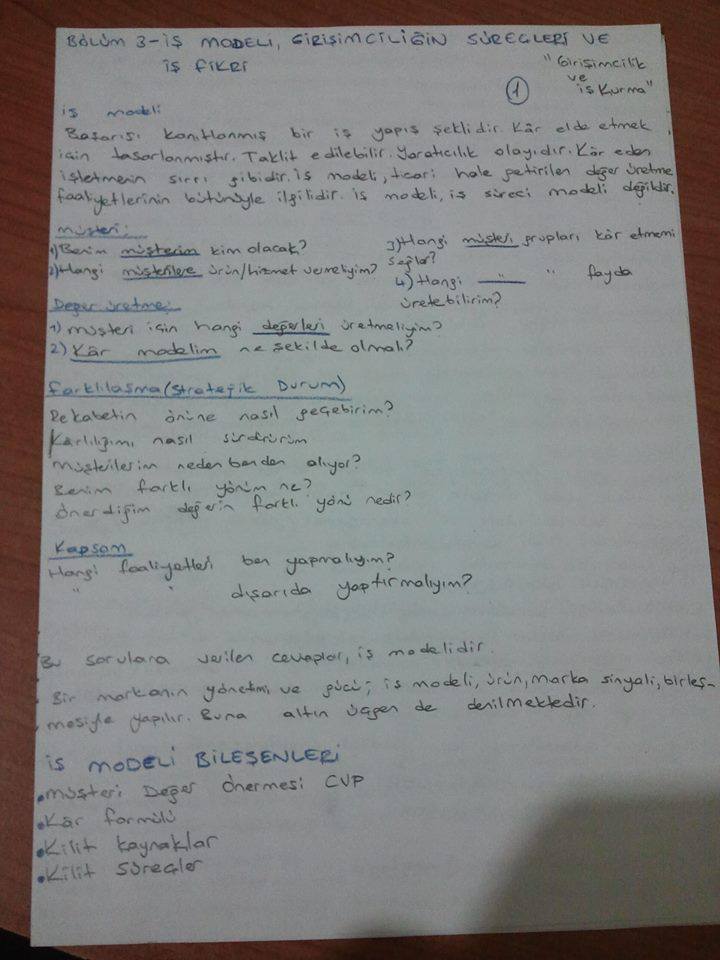 BÖLÜM 3-İŞ MODELİ, GİRİŞİMCİLİĞİN SÜREÇLERİ VE
İŞ FİKRİ
"Girişimcilik
ve
iş Kurma"
1
iş modeli
Başarısı kanıtlanmış bir iş yapış şeklidir. Kâr elde etmek
için tasarlanmıştır. Taklit edilebilir. Yaratıcılık olayıdır. Kâr eden
işletmenin sırrı gibidir. İş modeli, ticari hale getirilen değer üretme
faaliyetlerinin bütünüyle ilgilidir. İş modeli, iş süreci modeli değildir.
müşteri:
1) Benim müşterim kim olacak?
2) Hangi müşterilere ürün/hizmet vermeliyim?
3) Hangi müşteri grupları kâr etmemi
sağlar?
4) Hangi —— " fayda
üretebilirim?
Değer üretme:
1) müşteri için hangi değerleri üretmeliyim?
2) Kâr modelim ne şekilde olmalı?
farklılaşma (Stratejik Durum)
Rekabetin önüne nasıl geçebirim?
Karlılığımı nasıl sürdrürüm
müşterilerim neden benden alıyor?
Benim farklı yönüm ne?
önerdiğim değerin farklı yönü nedir?
Kapsam
Hangi faaliyetleri ben yapmalıyım?
" " dışarıda yaptırmalıyım?
Bu sorulara verilen cevaplar, iş modelidir.
Bir markanın yönetimi ve gücü; iş modeli, ürün, marka sinyali, birleş-
mesiyle yapılır. Buna altın üçgen de denilmektedir.
İŞ MODELİ BİLEŞENLERİ
• müşteri Değer önermesi CVP
• Kâr formülü
• Kilit kaynaklar
• Kilit Süreçler